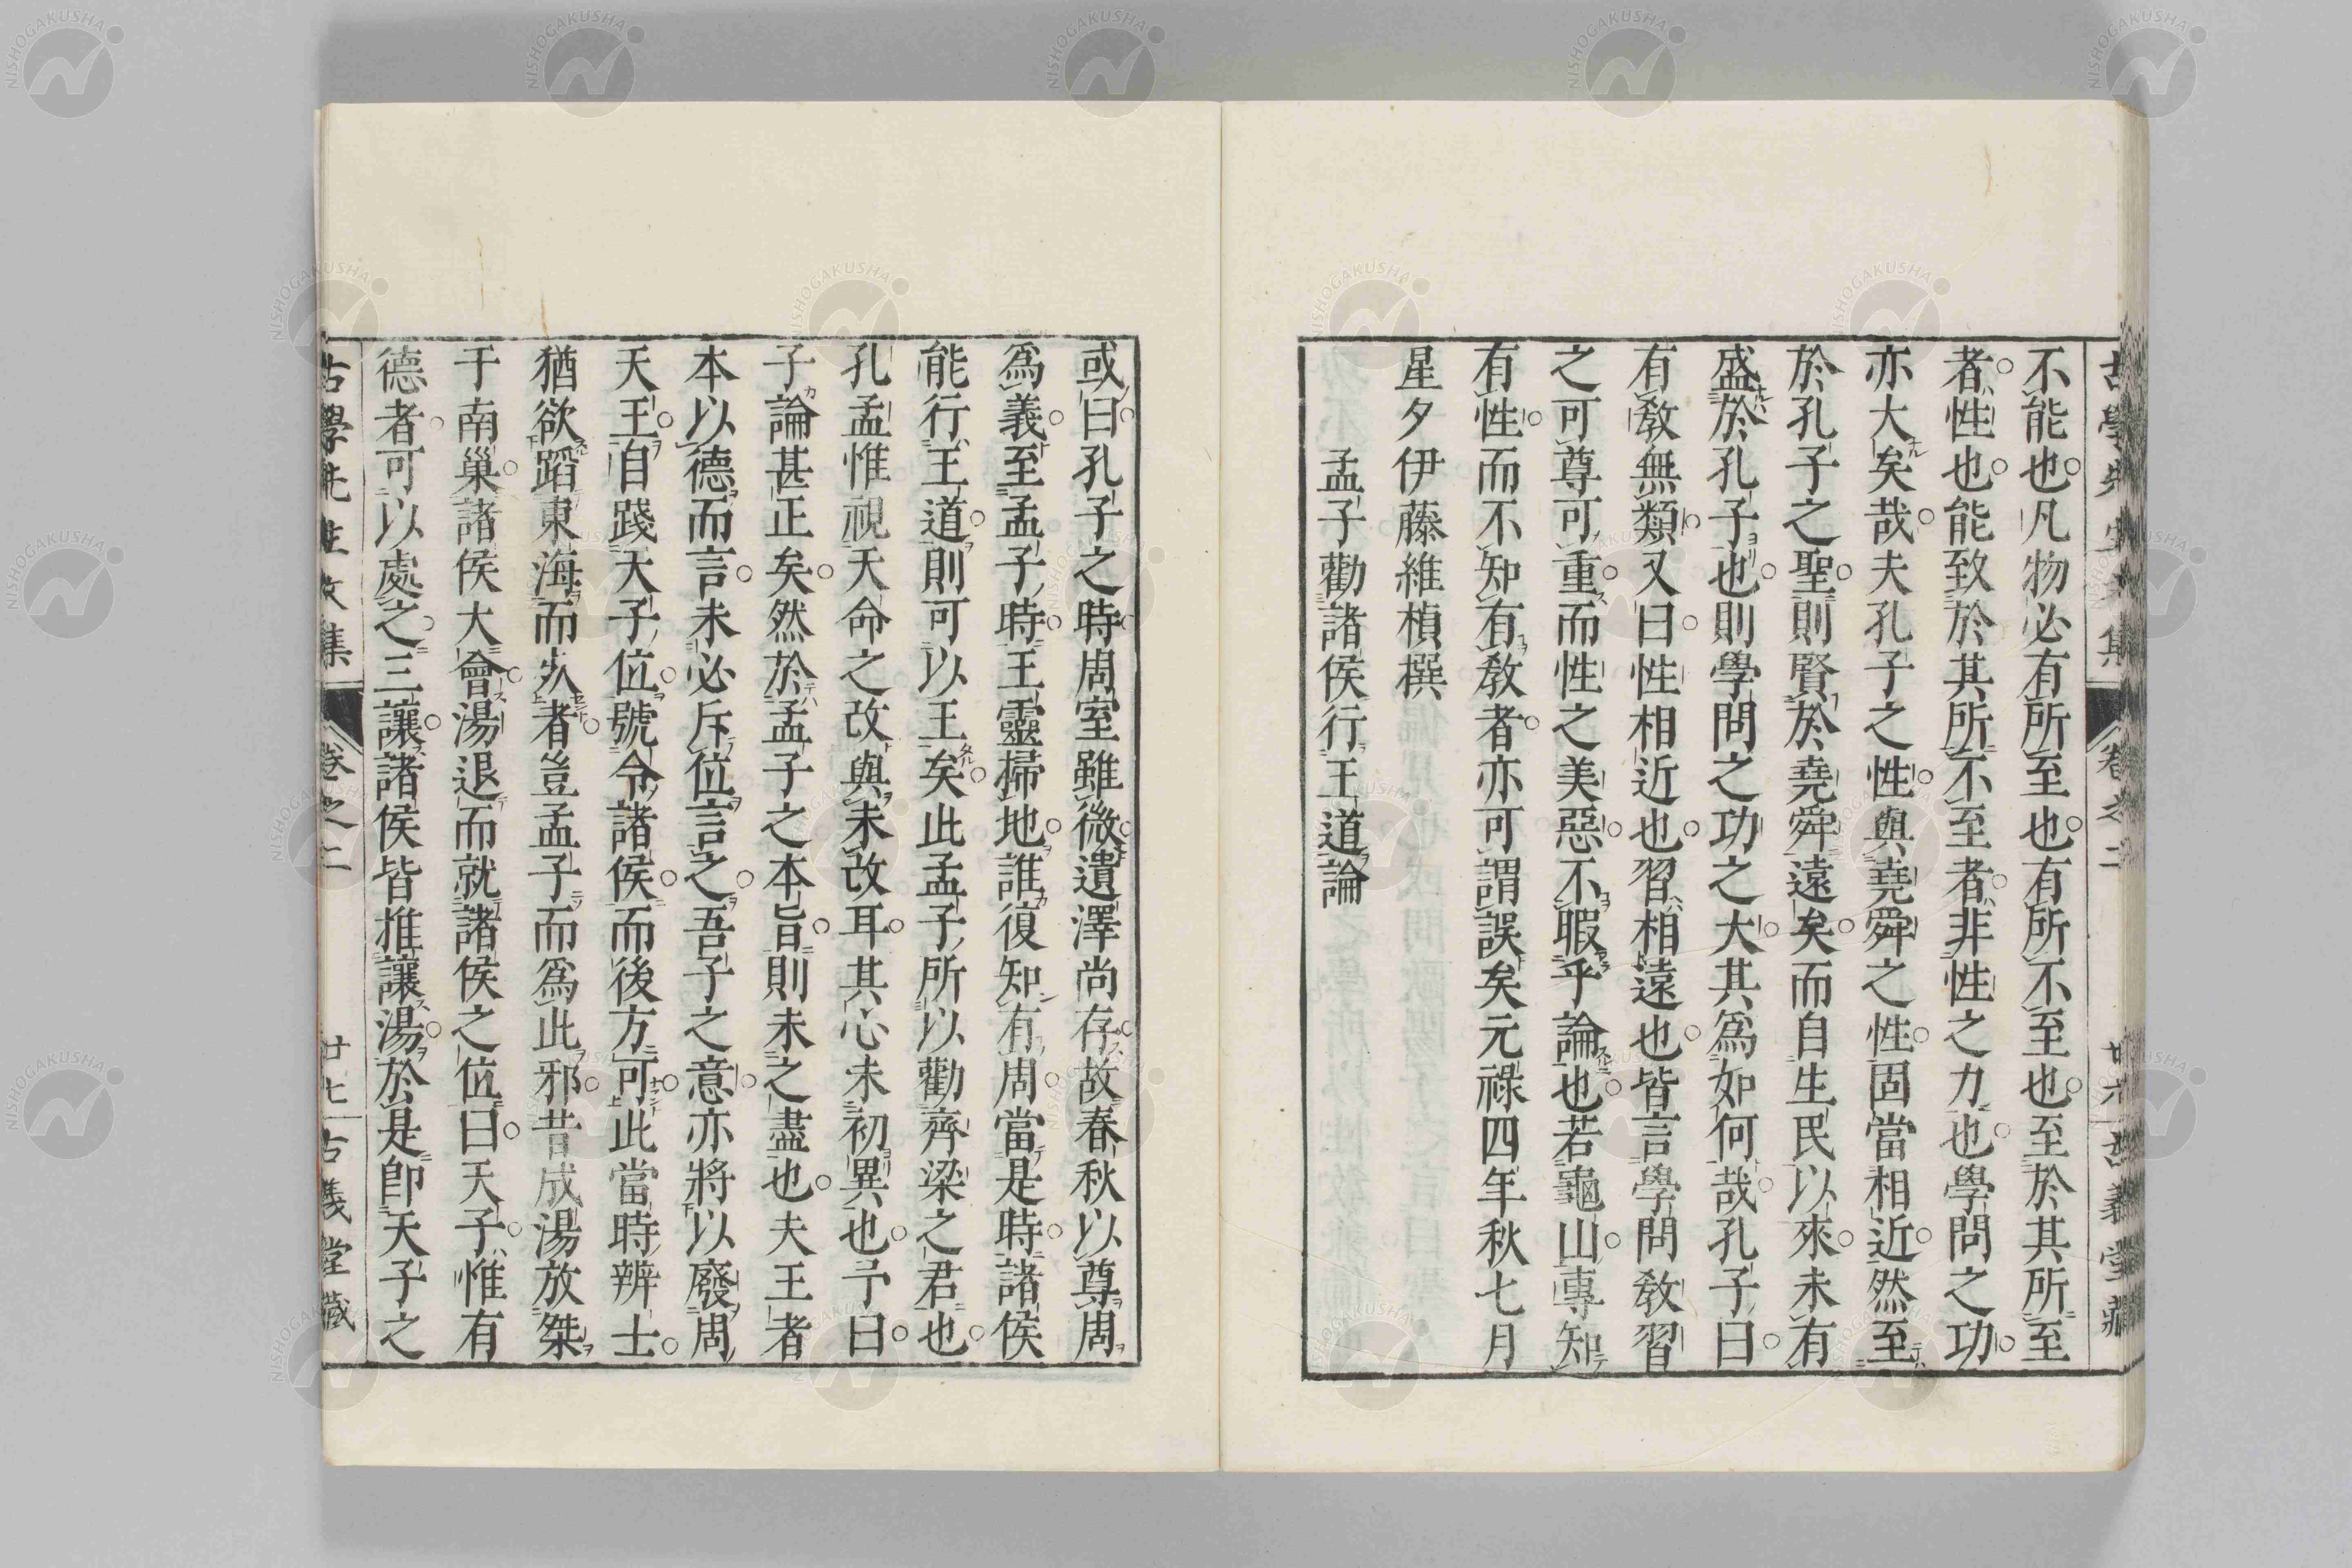 不能也凡物必有所至也有所不至也至於其所至
者性也能致於其所不至者非性之力也學問之功
亦大矣哉夫孔子之性與堯舜之性固當相近然至
於孔子之聖則賢於堯舜遠矣而自生民以來未有
盛於孔子也則學問之功之大其爲如何哉孔子曰
有教無類又曰性相近也習相遠也皆言學問教習
之可尊可重而性之美惡不暇乎論也若龜山專知
有性而不知有教者亦可謂誤矣元祿四年秋七月
星夕伊藤維楨撰
孟子勸諸侯行王道論
或曰孔子之時周室雖微遺澤尚存故春秋以尊周
爲義至孟子時王靈掃地誰復知有周當是時諸侯
能行王道則可以王矣此孟子所以勸齊梁之君也
孔孟惟視天命之改與未改耳其心未初異也予曰
子論甚正矣然於孟子之本旨則未之盡也夫王者
本以德而言未必斥位言之吾子之意亦將以廢周
天王自踐天子位號令諸侯而後方可此當時辨士
猶欲蹈東海而死者豈孟子而爲此邪昔成湯放桀
于南巢諸侯大會湯退而就諸侯之位曰天子惟有
德者可以處之三讓諸侯皆推讓湯於是即天子之
古學先生文集 卷之二 廿七 古義堂藏
NISHOGAKUSHA